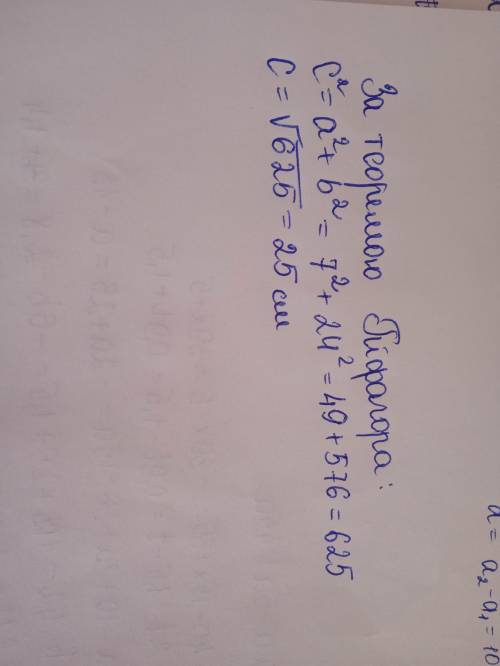 За теоремою Піфагора:
c² = a² + b² = 7² + 24² = 49 + 576 = 625
c = √625 = 25 см
a₂ - a₁ = 10